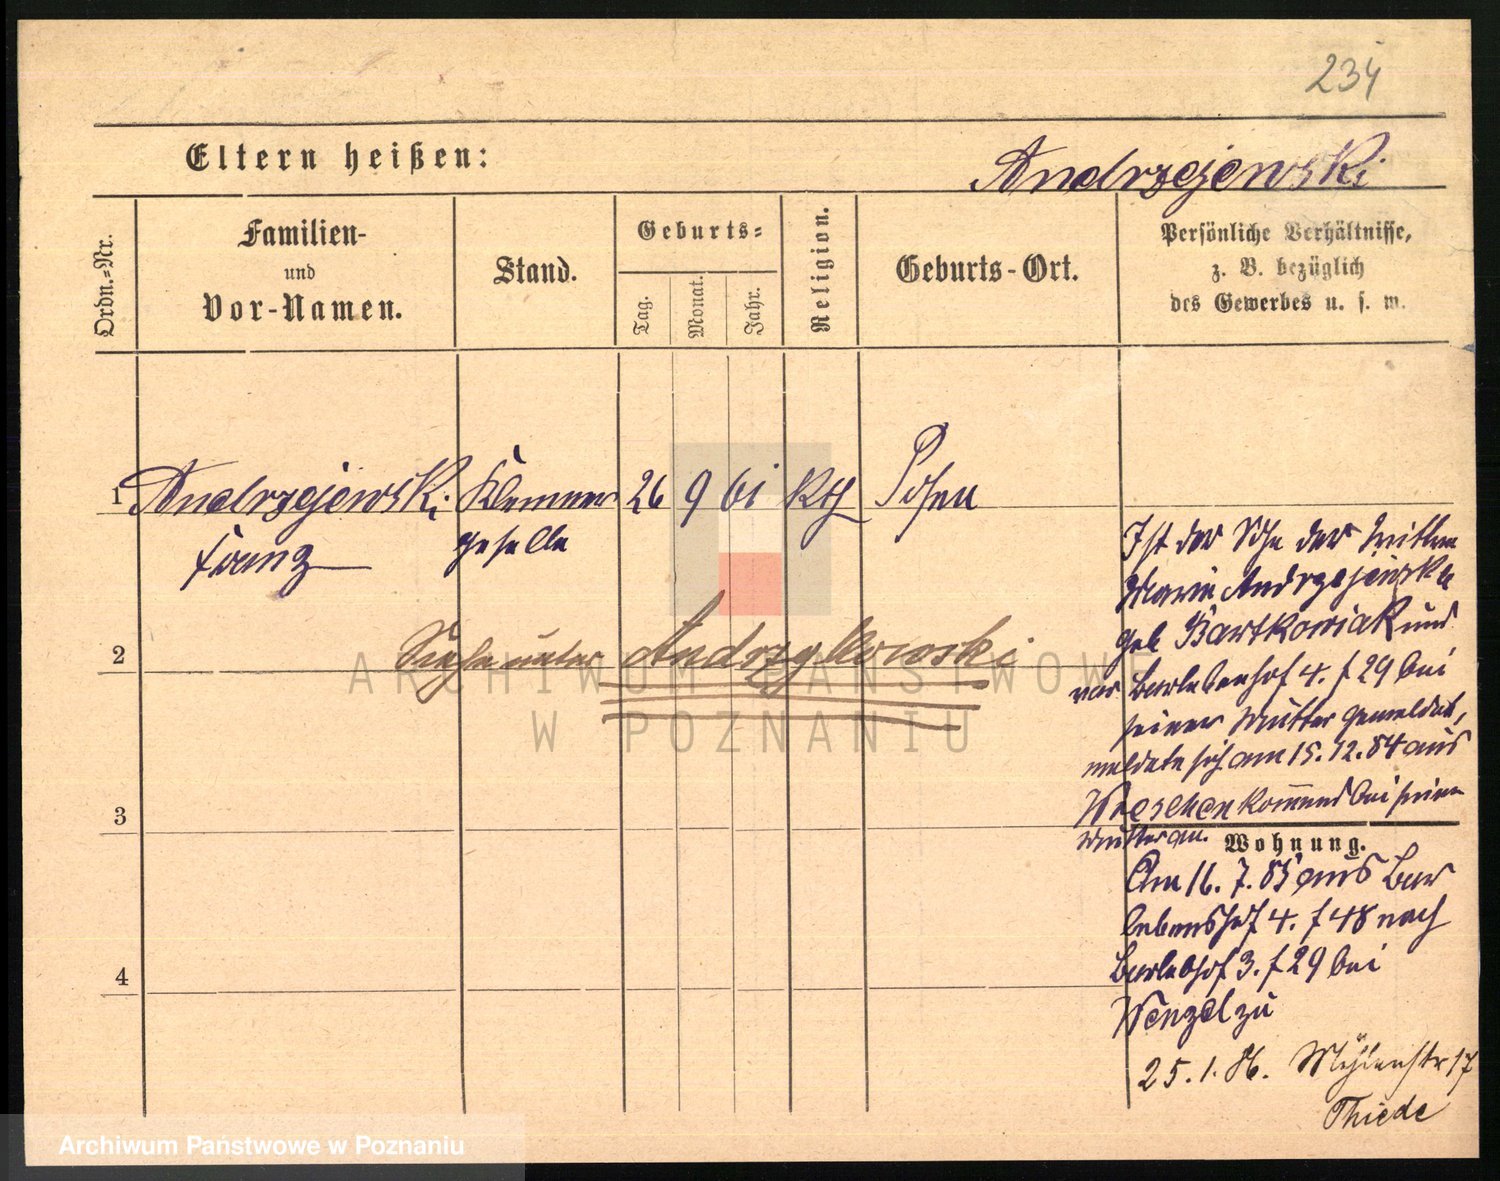 234
Eltern heißen:
Andrzejewski
Ordn.=Nr.
Familien-
und
Vor-Namen.
Stand.
Geburts=
Tag.
Monat.
Jahr.
Religion.
Geburts-Ort.
Persönliche Verhältnisse,
z. B. bezüglich
des Gewerbes u. s. w.
1 Andrzejewski Klempner 26 9 61 Kth Posen
Franz geselle
Ist der Sohn der Wittwe
Marie Andrzejewska
geb Bartkowiak und
war Barlebenhof 4. f 29 bei
seiner Mutter gemeldet,
meldete sich am 15.12.84 aus
Wreschen kommend bei seiner
Mutter an.
2 Siehe unter Andrzykowski
3
Wohnung.
Am 16. 7. 85 aus Bar
lebenshof 4. f 48 nach
Barlebhof 3. f 29 bei
Wenzel zu
4
25. 1. 86. Mühlenstr 17
Thiede
ARCHIWUM PAŃSTWOWE
W POZNANIU
Archiwum Państwowe w Poznaniu